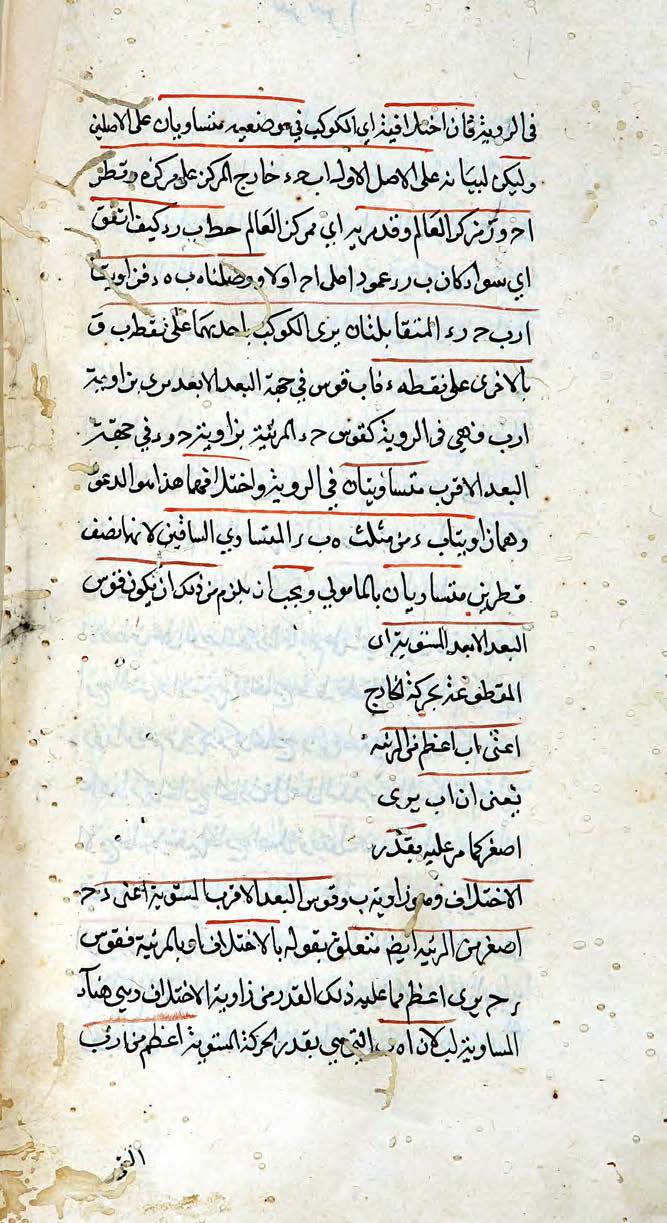 في الروية فان اختلافيه اي الكوكب في موضعيه متساويان على الاصلين
وليكن لبيانه على الاصل الاول اب ح ء خارج المركز على مركز ه وقطر
ا ح و ز مركز العالم وقد مر به اي بمركز العالم خط ب ر ء كيف اتفق
اي سواء كان ب ر ء عمودا على ا ح اولا ووصلنا ه ب ه ء فزاويتا
ا ر ب ح ر ء المتقابلتان يرى الكوكب باحديهما على نقطة ب و
بالاخرى على نقطة ء فاب قوس في جهة البعد الابعد يرى بزاوية
ا ر ب فهي في الروية كقوس ح ء المرئية بزاوية ح ر ء في جهة
البعد الاقرب متساويتان في الروية واختلافهما هذا هو الدعوى
وهما زاويتا ب ء من مثلث ه ب ء المتساوي الساقين لانهما نصف
قطرين متساويان بالمامولي ويجب ان يلزم من ذلك ان يكون قوس
البعد الابعد المستوية اي
المقطوعة بحركة الخارج
اعنى اب اعظم من المرئيه
يعنى ان اب يرى
اصغر كما مر عليه بقدر
الاختلاف وهو زاوية ب وقوس البعد الاقرب المستوية اعنى ء ح
اصغر من المرئيه ايضا متعلق بقوله بالاختلاف او بالمرئية فقوس
ء ح يرى اعظم مما عليه ذلك القدر من زاوية الاختلاف وهي هنا ء
المساوية لب لان ا ه ب التي هي بقدر الحركة المستوية اعظم من ا ر ب